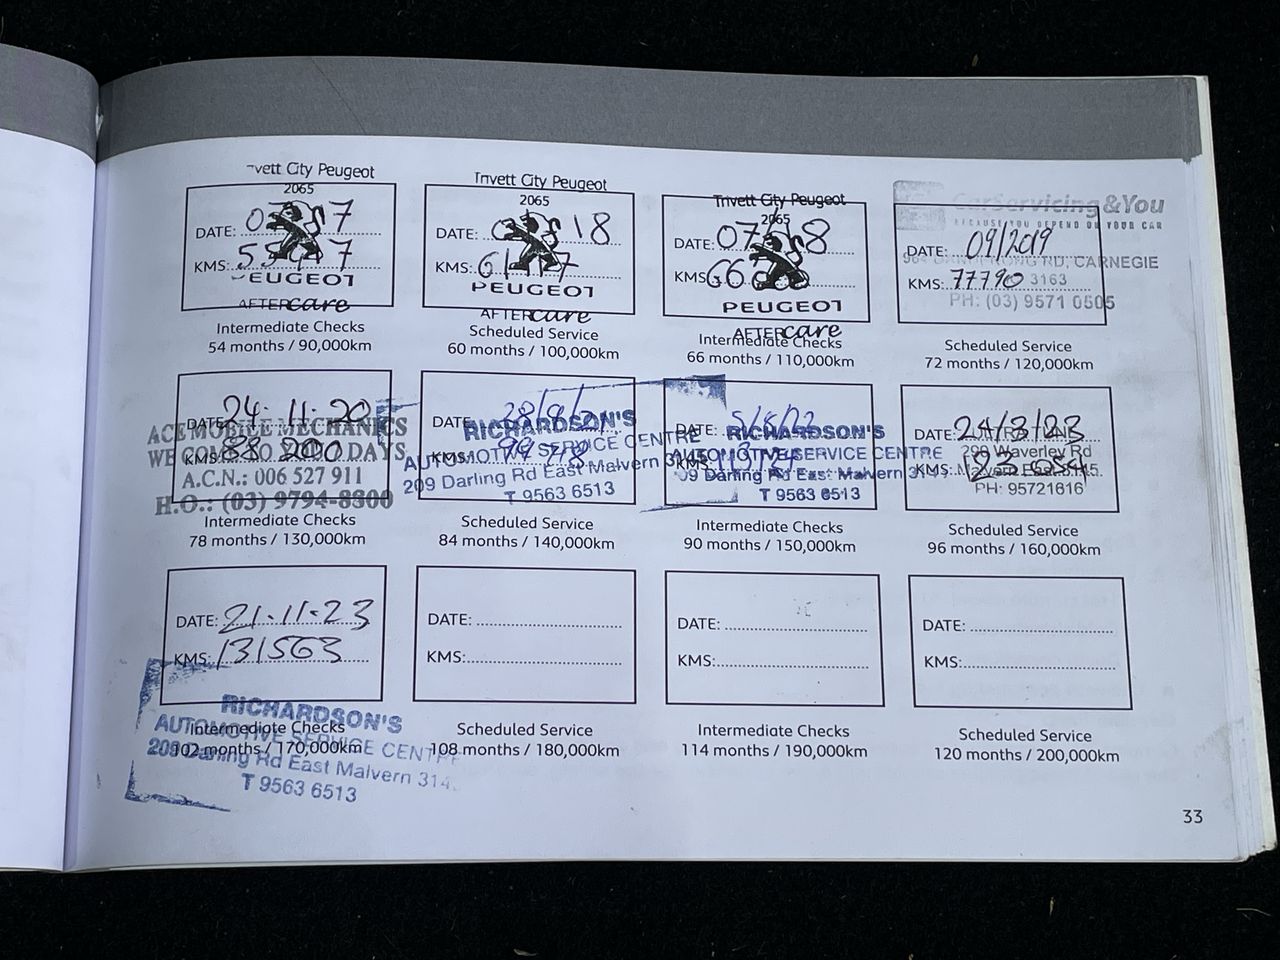 Trivett City Peugeot
2065
DATE:
KMS:
PEUGEOT
AFTERcare
Intermediate Checks
54 months / 90,000km
Trivett City Peugeot
2065
DATE: 18
KMS:
PEUGEOT
AFTERcare
Scheduled Service
60 months / 100,000km
Trivett City Peugeot
2065
DATE: 07 8
KMS:
PEUGEOT
AFTERcare
Intermediate Checks
66 months / 110,000km
CarServicing&You
BECAUSE YOU DEPEND ON YOUR CAR
DATE: 09/2019
RD, CARNEGIE
KMS: 77790
3163
PH: (03) 9571 0505
Scheduled Service
72 months / 120,000km
DATE: 24.11.20
ACE MOBILE MECHANICS
WE COME TO YOU 7 DAYS
KMS: 88 200
A.C.N.: 006 527 911
H.O.: (03) 9794-8800
Intermediate Checks
78 months / 130,000km
DATE: 28/8/21
RICHARDSON'S
KMS:
AUTOMOTIVE SERVICE CENTRE
209 Darling Rd East Malvern
T 9563 6513
Scheduled Service
84 months / 140,000km
DATE:
RICHARDSON'S
KMS:
AUTOMOTIVE SERVICE CENTRE
209 Darling Rd East Malvern
T 9563 6513
Intermediate Checks
90 months / 150,000km
DATE: 24/3/23
Waverley Rd
KMS:
PH: 95721616
Scheduled Service
96 months / 160,000km
DATE: 21.11.23
KMS: 131563
RICHARDSON'S
AUTOMOTIVE SERVICE CENTRE
209 Darling Rd East Malvern
T 9563 6513
Intermediate Checks
102 months / 170,000km
DATE:
KMS:
Scheduled Service
108 months / 180,000km
DATE:
KMS:
Intermediate Checks
114 months / 190,000km
DATE:
KMS:
Scheduled Service
120 months / 200,000km
33